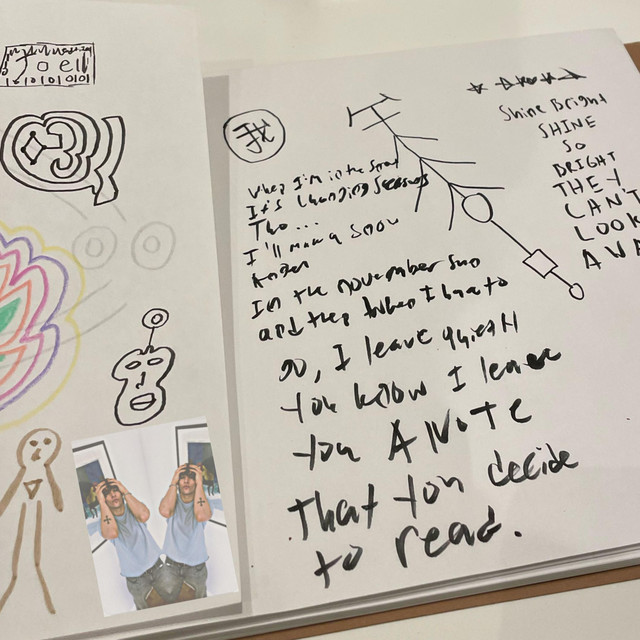 Joell
When I'm in the
It's changing seasons
Tho...
I'll make a snow
In the november sun
and then when I have to
go, I leave quietly
You know I leave
You A NOTE
That you decide
to read.
Shine Bright
SHINE
SO
BRIGHT
THEY
CAN'T
LOOK
AWA